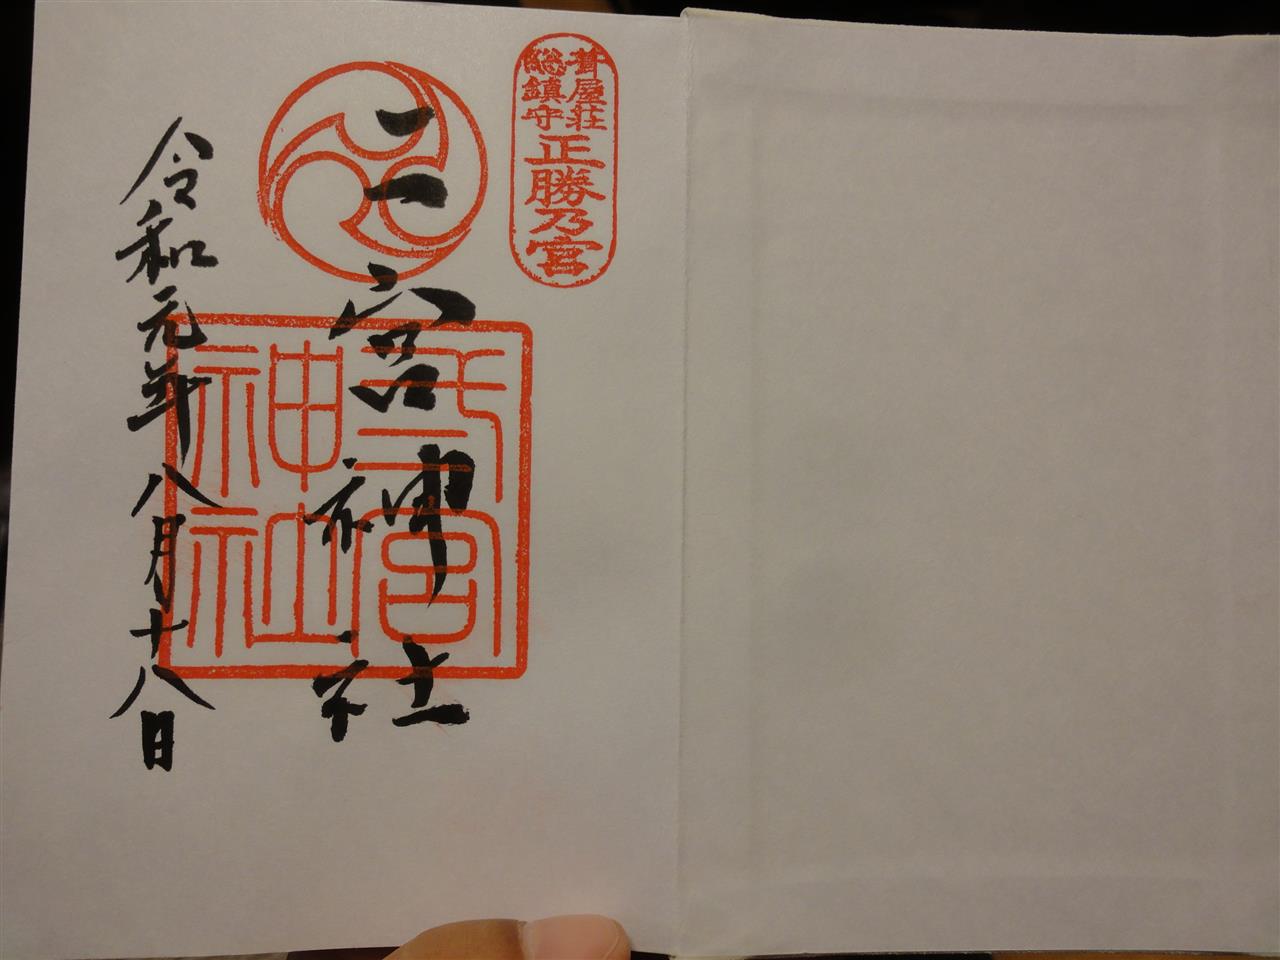 葺屋荘
総鎮守
正勝乃宮
二宮神社
弍宮
神社
令和元年八月十八日